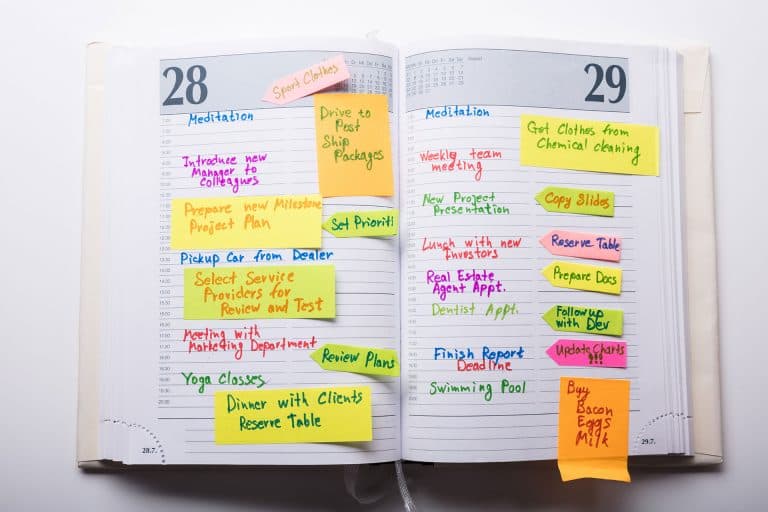 28
Sport Clothes
Meditation
Drive to
Post
Ship
Packages
Introduce new
Manager to
Colleagues
Prepare new Milestone
Project Plan
Set Prioriti
Pickup Car from Dealer
Select Service
Providers for
Review and Test
Meeting with
Marketing Department
Review Plans
Yoga Classes
Dinner with Clients
Reserve Table
28.7.
29
Meditation
Get Clothes from
Chemical cleaning
Weekly team
meeting
New Project
Presentation
Copy Slides
Lunch with new
Investors
Reserve Table
Real Estate
Agent Appt.
Prepare Docs
Dentist Appt.
Followup
with Dev
Finish Report
Deadline
Update Charts
!!!
Swimming Pool
Buy
Bacon
Eggs
Milk
29.7.